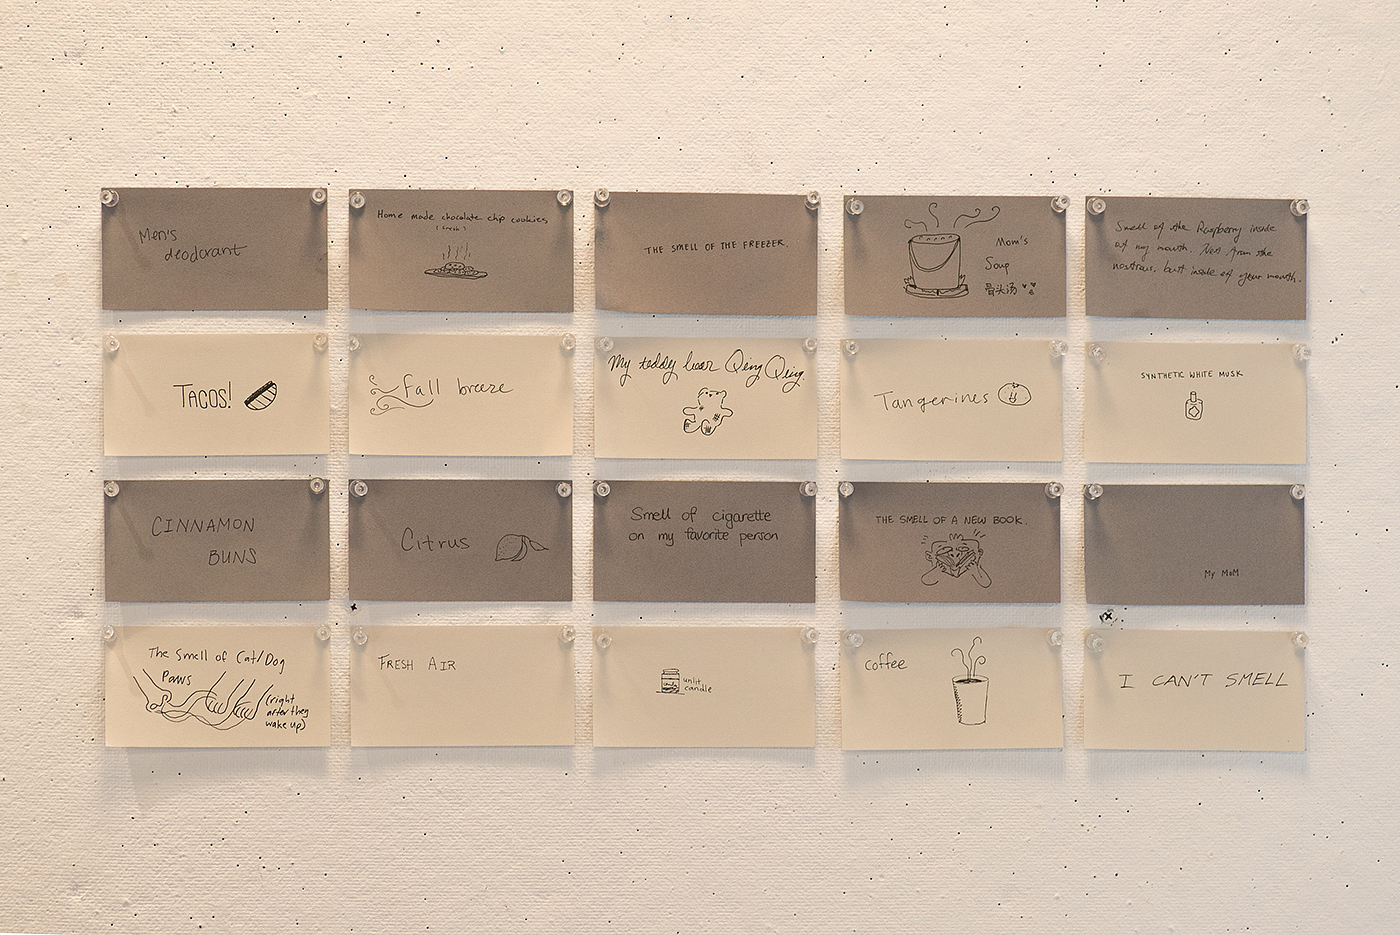 Men's
deodorant
Home made chocolate chip cookies
(fresh)
THE SMELL OF THE FREEZER.
Mom's
Soup
骨头汤
Smell of the Raspberry inside
of my mouth. Not from the
nostrous. but inside of your mouth.
TACOS!
fall breeze
My teddy bear Qing Qing.
Tangerines
SYNTHETIC WHITE MUSK
CINNAMON
BUNS
Citrus
Smell of cigarette
on my favorite person
THE SMELL OF A NEW BOOK.
My MoM
The Smell of Cat/Dog
Paws
(right
after they
wake up)
FRESH AIR
unlit
candle
coffee
I CAN'T SMELL